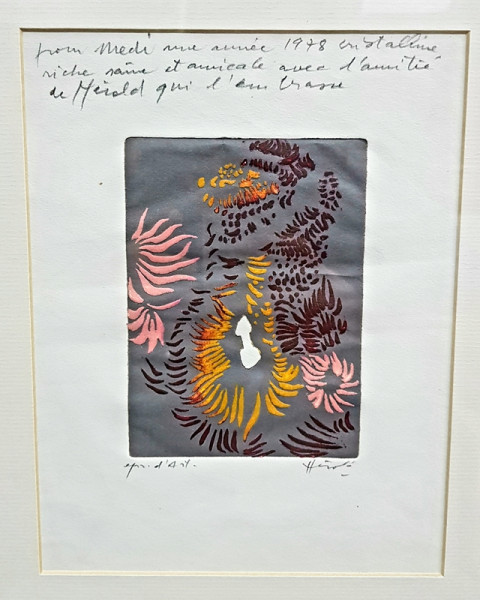 from Medi une année 1978 cristalline
riche saine et amicale avec l'amitié
de Hérold qui l'embrasse
epr. d'Art.
Hérold